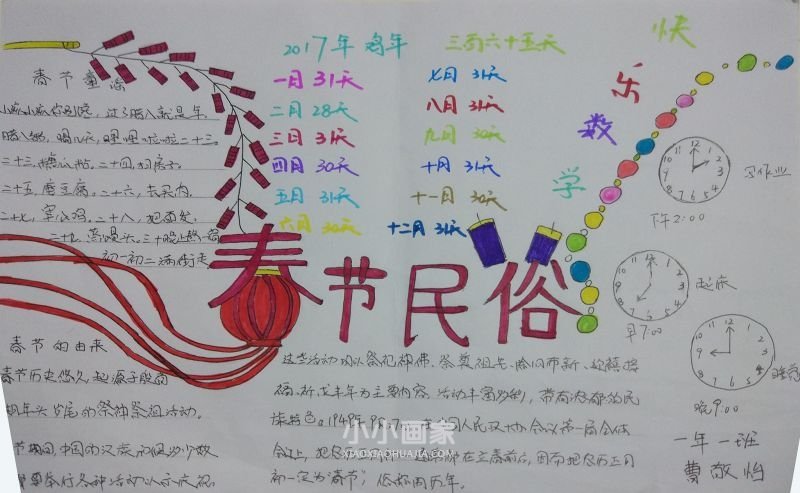 2017年 鸡年 三百六十五天
一月 31天 七月 31天
二月 28天 八月 31天
三月 31天 九月 30天
四月 30天 十月 31天
五月 31天 十一月 30天
六月 30天 十二月 31天
快乐数学
春节童谣
小孩小孩你别馋，过了腊八就是年
二十三
二十三，糖瓜粘。二十四，扫房子
二十五，磨豆腐。二十六，去买肉
二十七，宰公鸡。二十八，把面发
二十九，蒸馒头。三十晚上熬一宿
初一初二满街走
春节民俗
写作业
下午2:00
起床
早7:00
睡觉
晚9:00
春节的由来
春节历史悠久，起源于殷商
期年头岁尾的祭神祭祖活动。
节期间，中国的汉族和很多少数
举行各种活动以示庆祝
这些活动以祭祀神佛、祭奠祖先、除旧布新、迎禧接
福、祈求丰年为主要内容，活动丰富多彩，带有浓郁的民
族特色。1949年9月27 国人民政协会议第一届全体
会议上，把 在立春前后，因而把农历正月
初一定为"春节"，俗称阴历年。
一年一班
曹敬怡
小小画家
XIAOXIAOHUAJIA.COM